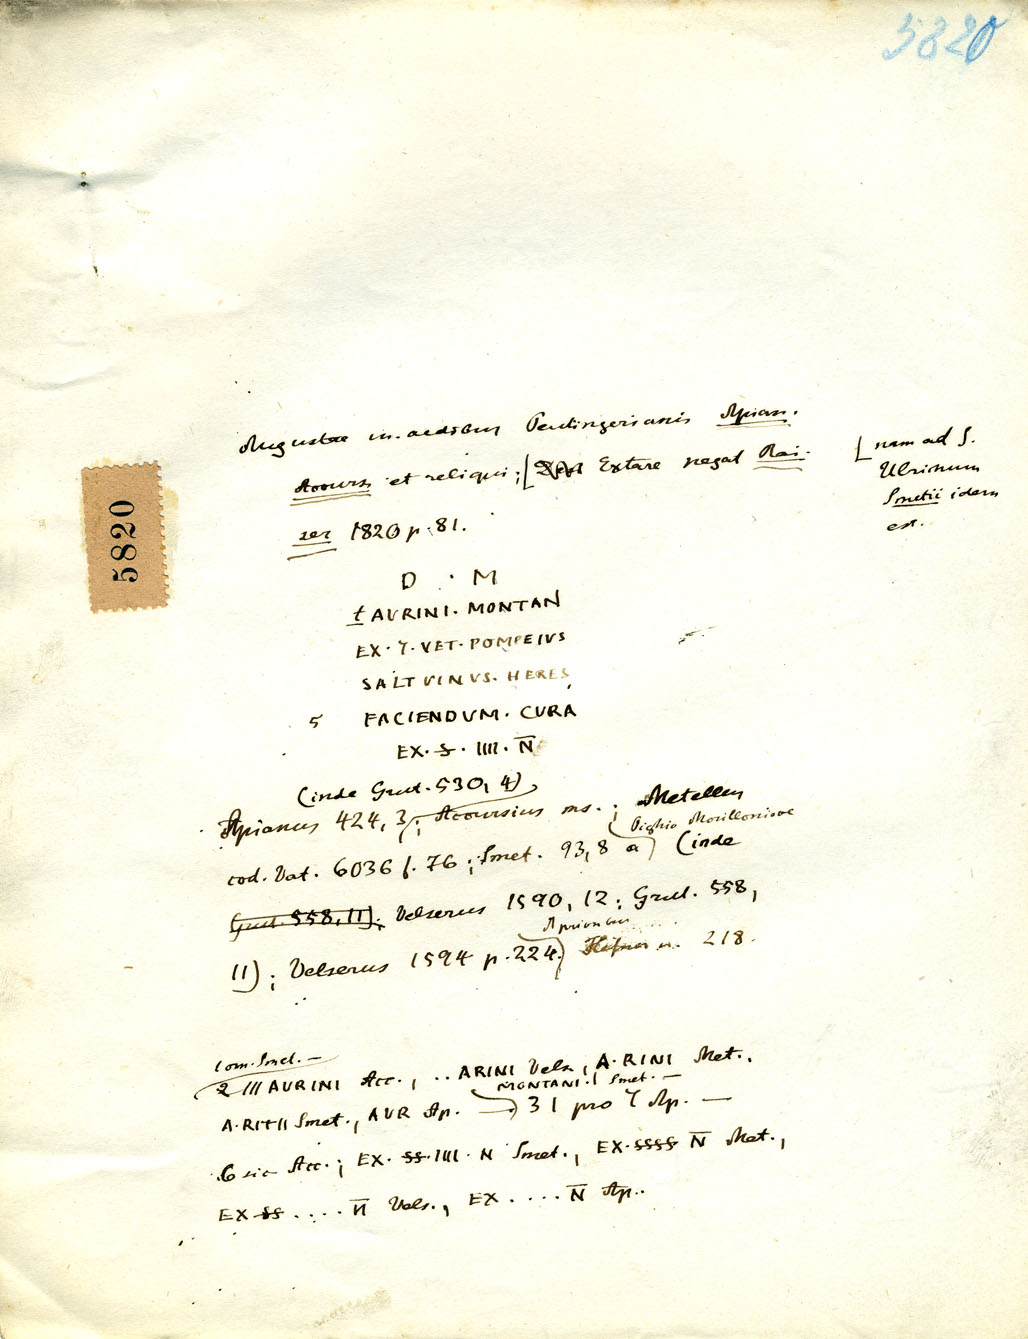 5820
Augustae in aedibus Peutingerianis Apian.
Accurs et reliqui; [ Extare negat Rai-
ser 1820 p. 81.
[nam ad S.
Ulricum
Smetii idem
est.
5820
D · M
tAURINI · MONTAN
EX · 7 · VET · POMPEIVS
SALTVINVS · HERES
5 FACIENDVM · CURA
EX · S · IIII · N̅
(inde Grut. 530, 4)
Apianus 424, 3; Accursius ms.; Metellus
Pighio Morillonisve
cod. Vat. 6036 f. 76; Smet. 93, 8 a) (inde
Grut. 558, 11). Velserus 1590, 12; Grut. 558,
Aprionus
11); Velserus 1594 p. 224. Hefner n. 218.
com. Smet. —
2 III AURINI Acc., .. ARINI Vels., A·RINI Met.,
MONTANI·I Smet. —
A·RITII Smet., AUR Ap. — 3 I pro 7 Ap. —
6 sic Acc.; EX · SS · IIII · N Smet., EX · SSSS N̅ Met.,
EX SS .... N̅ Vels., EX .... N̅ Ap..